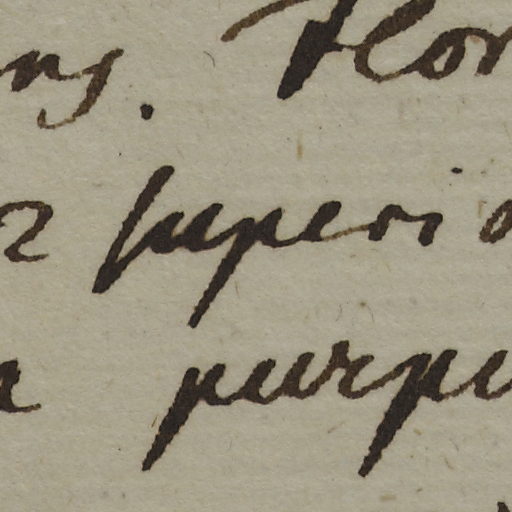 ns. Flor
r superio
a purpu